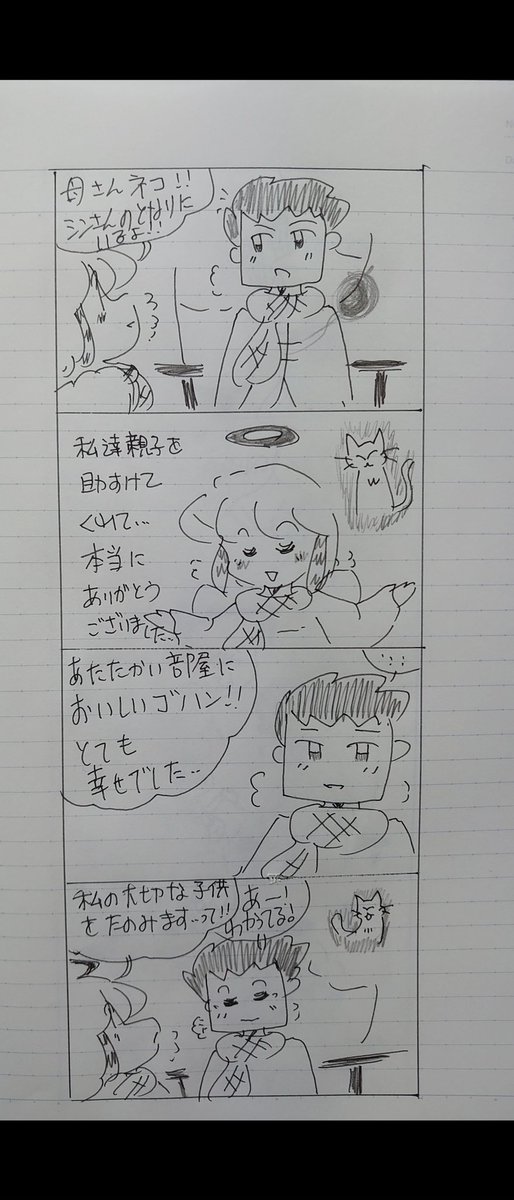 母さんネコ!!
シンさんのとなりに
いるよ!!
私達親子を
助すけて
くれて…
本当に
ありがとう
ございましたっ
あたたかい部屋に
おいしいゴハン!!
とても
幸せでした…
私の大切な子供
をたのみます…って!!
あー!
わかってる!